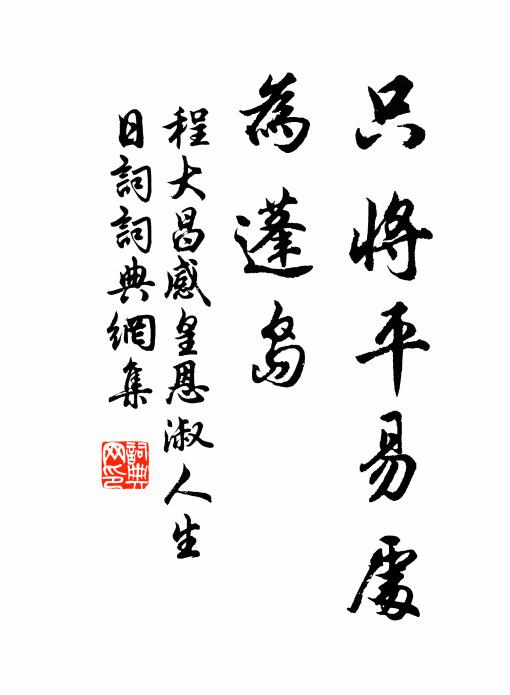 只將平易處
為蓬島
程大昌感皇恩淑人生
日詞詞典網集
詞典
网印